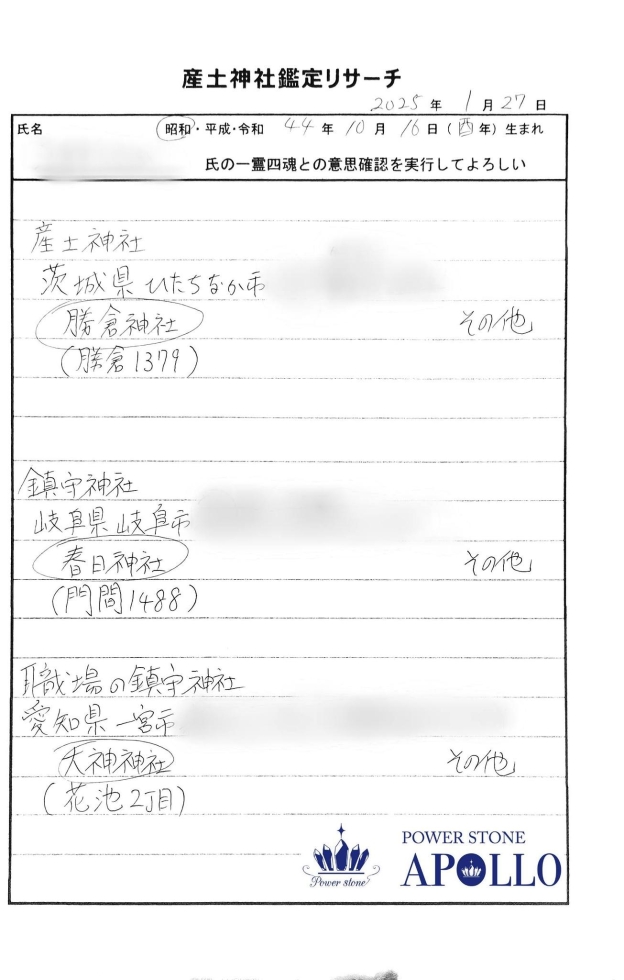 産土神社鑑定リサーチ
2025 年 1 月 27 日
氏名 昭和・平成・令和 44 年 10 月 16 日 (酉 年) 生まれ
氏の一霊四魂との意思確認を実行してよろしい
産土神社
茨城県ひたちなか市
勝倉神社 その他
(勝倉1379)
鎮守神社
岐阜県岐阜市
春日神社 その他
(門間1488)
職場の鎮守神社
愛知県一宮市
大神神社 その他
(花池2丁目)
Power stone
POWER STONE
APOLLO